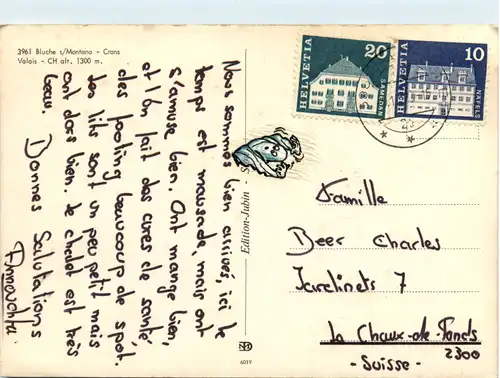 3961 Bluche s/Montana - Crans
Valais - CH alt. 1300 m.
Nous sommes bien arrivés, ici le
temps est maussade, mais ont
s'amuse bien. Ont mange bien,
et l'ôn fait des cures de santé
des footing beaucoup de spot.
Les lits sont un peu petit mais
ont dors bien. Le chalet est très
beau. Bonnes Salutations
Edition-Jubin -
6019
HELVETIA
20
SAMEDAN
HELVETIA
10
NÄFELS
Famille
Beer Charles
Jardinets 7
La Chaux-de-Fonds
2300
- Suisse -